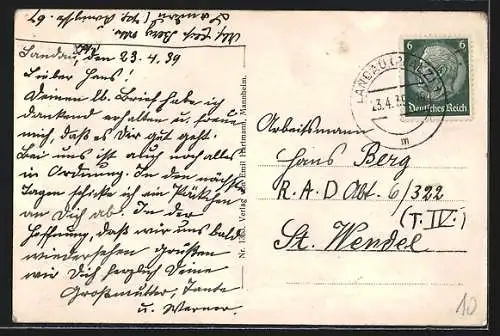 Landau, den 23.4.39
Lieber Hans!
Deinen lb. Brief habe ich
dankend erhalten u. freue
mich, daß es Dir gut geht.
Bei uns ist auch noch alles
in Ordnung. In den nächsten
Tagen schicke ich ein Päckchen
an Dich ab. In der
Hoffnung, daß wir uns bald
wiedersehen grüßen
wir Dich herzlich Deine
Großmutter, Tante
u. Werner.
Nr. 138 Verlag Emil Hartmann, Mannheim.
6 6
Deutsches Reich
LANDAU (PFALZ)
23.4.39
m
Arbeitsmann
Hans Berg
R.A.D Abt. 6/322
(T.IV.)
St. Wendel
10